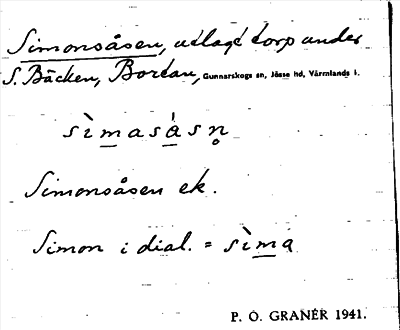 Simonsåsen, utlagt torp under
S. Bäcken, Bortan, Gunnarskogs sn, Jösse hd, Värmlands l.
sìmasåsn̥
Simonsåsen ek.
Simon i dial. = sìma
P. O. GRANÉR 1941.